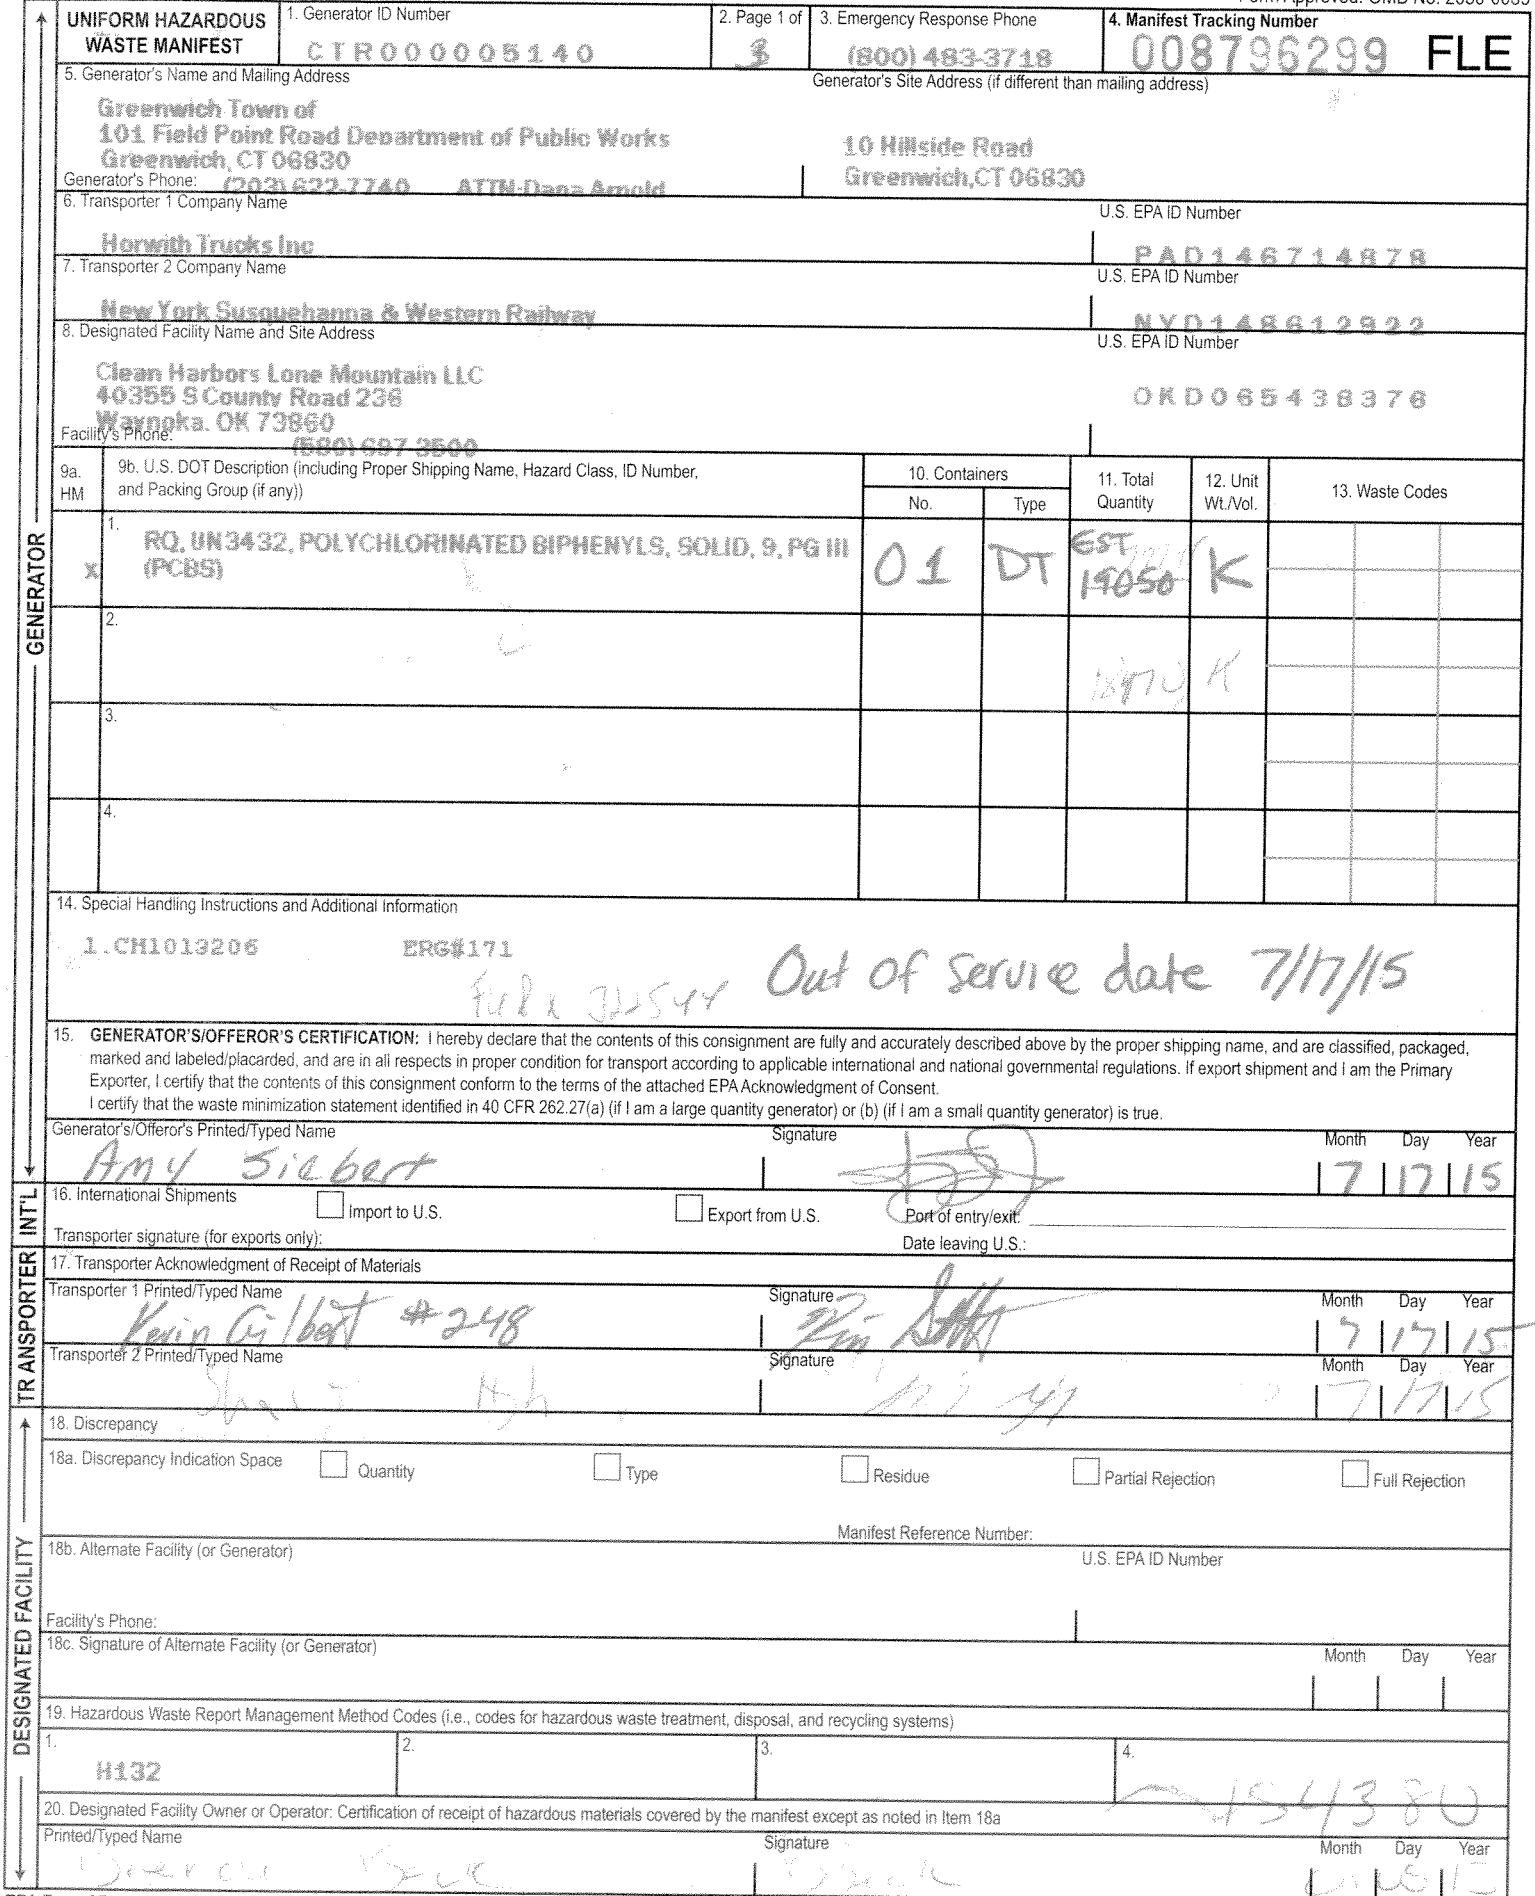 UNIFORM HAZARDOUS WASTE MANIFEST
1. Generator ID Number
CTR000005140
2. Page 1 of
3
3. Emergency Response Phone
(800) 483-3718
4. Manifest Tracking Number
008796299 FLE
5. Generator's Name and Mailing Address
Generator's Site Address (if different than mailing address)
Greenwich Town of
101 Field Point Road Department of Public Works
Greenwich, CT 06830
10 Hillside Road
Greenwich,CT 06830
Generator's Phone: (203) 622-7740 ATTN-Dana Arnold
6. Transporter 1 Company Name
U.S. EPA ID Number
Horwith Trucks Inc
PAD146714878
7. Transporter 2 Company Name
U.S. EPA ID Number
New York Susquehanna & Western Railway
NYD148612922
8. Designated Facility Name and Site Address
U.S. EPA ID Number
Clean Harbors Lone Mountain LLC
40355 S County Road 236
Waynoka, OK 73860
OKD065438376
Facility's Phone: (580) 697-3500
9a. HM
9b. U.S. DOT Description (including Proper Shipping Name, Hazard Class, ID Number, and Packing Group (if any))
10. Containers
No.
Type
11. Total Quantity
12. Unit Wt./Vol.
13. Waste Codes
1.
X
RQ, UN3432, POLYCHLORINATED BIPHENYLS, SOLID, 9, PG III
(PCBS)
01
DT
EST
19050
K
2.
K
3.
4.
14. Special Handling Instructions and Additional Information
1.CH1013206 ERG#171
Out of service date 7/17/15
15. GENERATOR'S/OFFEROR'S CERTIFICATION: I hereby declare that the contents of this consignment are fully and accurately described above by the proper shipping name, and are classified, packaged,
marked and labeled/placarded, and are in all respects in proper condition for transport according to applicable international and national governmental regulations. If export shipment and I am the Primary
Exporter, I certify that the contents of this consignment conform to the terms of the attached EPA Acknowledgment of Consent.
I certify that the waste minimization statement identified in 40 CFR 262.27(a) (if I am a large quantity generator) or (b) (if I am a small quantity generator) is true.
Generator's/Offeror's Printed/Typed Name
Signature
Month Day Year
Amy Siebert
7 17 15
16. International Shipments
Import to U.S.
Export from U.S.
Port of entry/exit:
Transporter signature (for exports only):
Date leaving U.S.:
17. Transporter Acknowledgment of Receipt of Materials
Transporter 1 Printed/Typed Name
Signature
Month Day Year
Kevin Gilbert #248
7 17 15
Transporter 2 Printed/Typed Name
Signature
Month Day Year
7 17 15
18. Discrepancy
18a. Discrepancy Indication Space
Quantity
Type
Residue
Partial Rejection
Full Rejection
Manifest Reference Number:
18b. Alternate Facility (or Generator)
U.S. EPA ID Number
Facility's Phone:
18c. Signature of Alternate Facility (or Generator)
Month Day Year
19. Hazardous Waste Report Management Method Codes (i.e., codes for hazardous waste treatment, disposal, and recycling systems)
1.
H132
2.
3.
4.
154380
20. Designated Facility Owner or Operator: Certification of receipt of hazardous materials covered by the manifest except as noted in Item 18a
Printed/Typed Name
Signature
Month Day Year
GENERATOR
INT'L
TRANSPORTER
DESIGNATED FACILITY